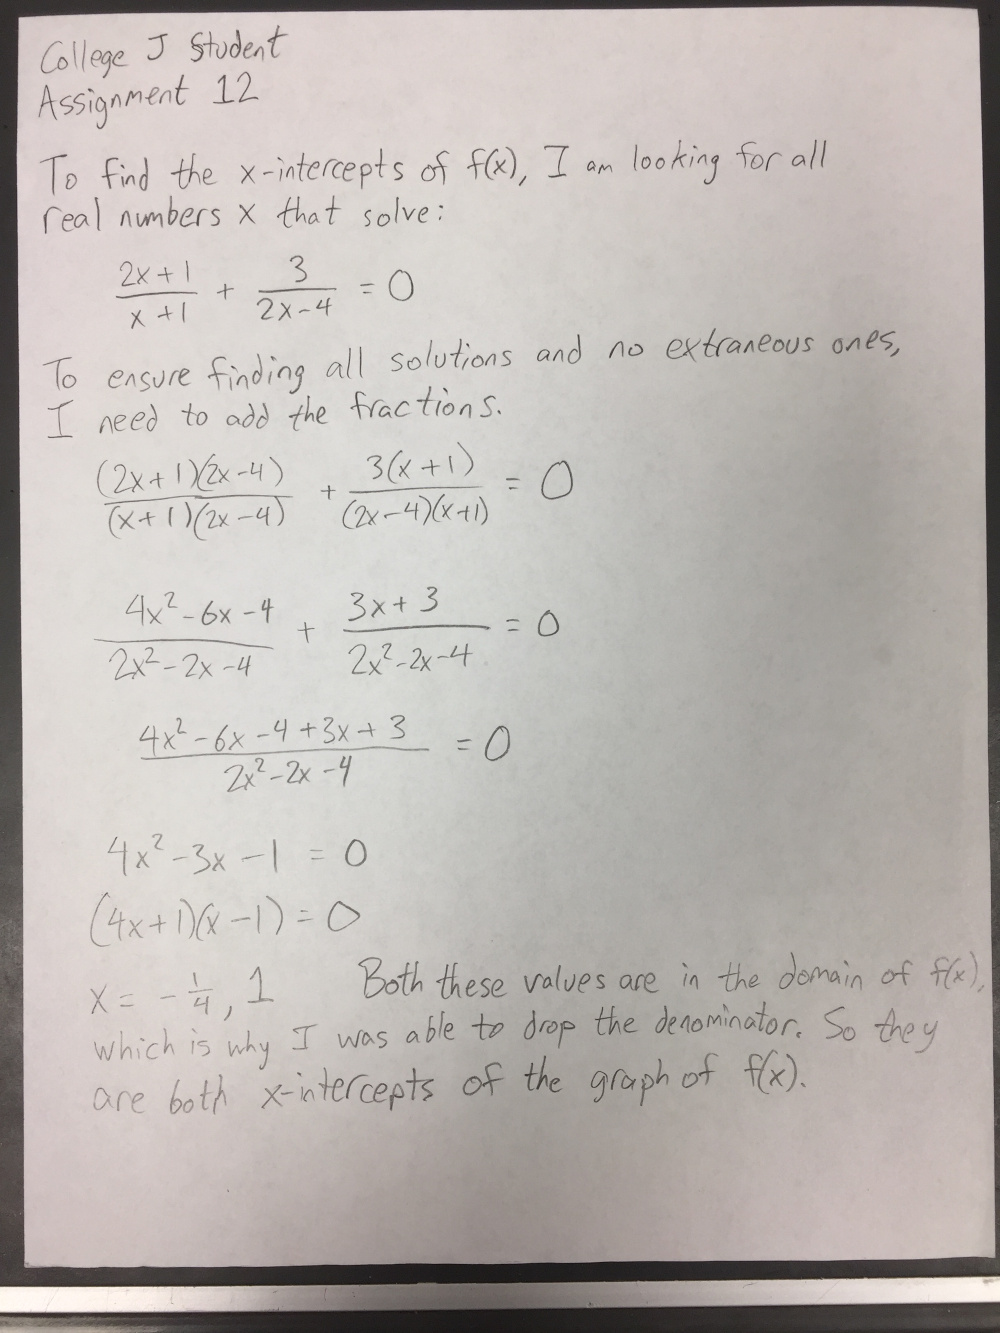 College J Student
Assignment 12
To find the x-intercepts of f(x), I am looking for all
real numbers x that solve:
(2x+1)/(x+1) + 3/(2x-4) = 0
To ensure finding all solutions and no extraneous ones,
I need to add the fractions.
(2x+1)(2x-4)/((x+1)(2x-4)) + 3(x+1)/((2x-4)(x+1)) = 0
(4x²-6x-4)/(2x²-2x-4) + (3x+3)/(2x²-2x-4) = 0
(4x²-6x-4+3x+3)/(2x²-2x-4) = 0
4x²-3x-1 = 0
(4x+1)(x-1) = 0
x = -1/4, 1 Both these values are in the domain of f(x),
which is why I was able to drop the denominator. So they
are both x-intercepts of the graph of f(x).